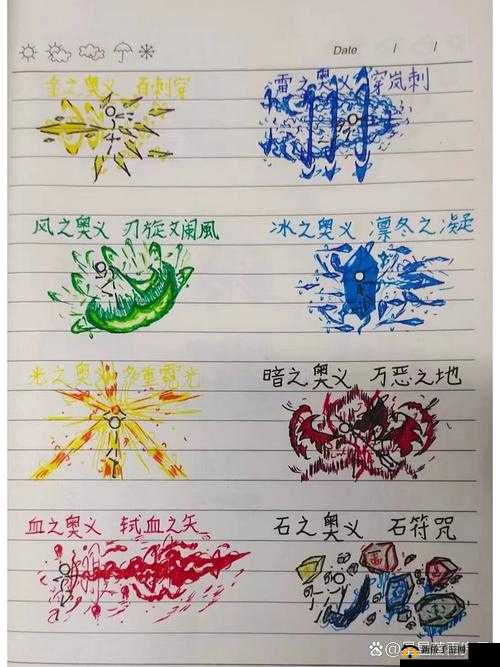 Date / /
金之奥义 百刺穿
雷之奥义 穿岚刺
风之奥义 刃旋文阑風
冰之奥义 凛冬之凝
光之奥义 多重霓光
暗之奥义 万恶之地
血之奥义 轼血之矢
石之奥义 石符咒